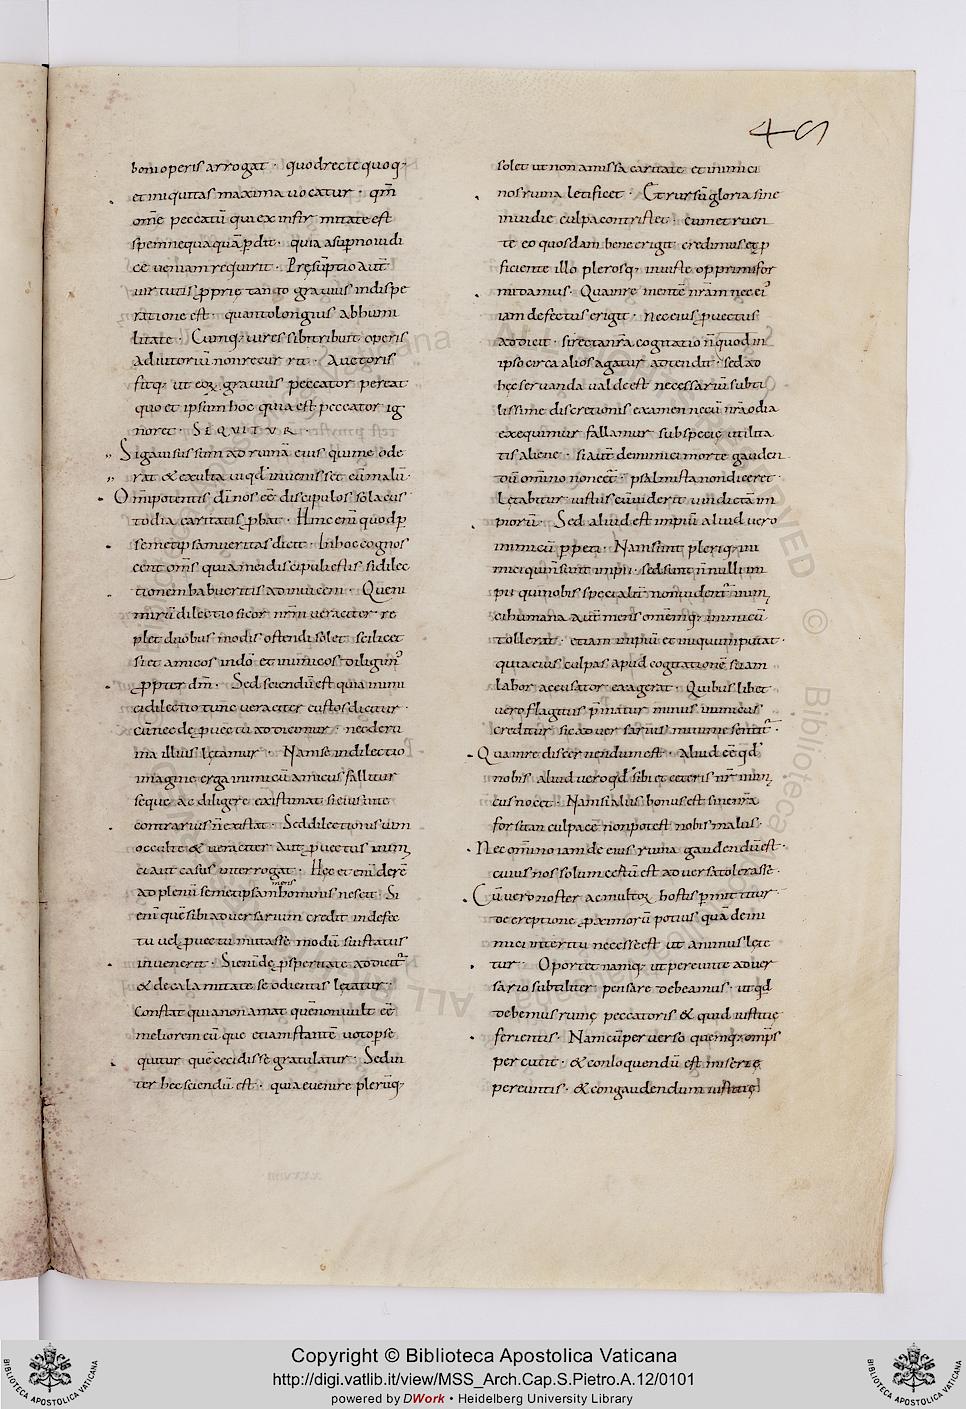 49
boni operis arrogat · quod recte quoq;
et iniquitas maxima uocatur · qm̄
om̄e peccatū qui ex infir mitate est
spem nequaquā ꝑdit · quia a supno iudi
ce ueniam requirit · Pręsūptio aut̄
uirtutis ꝓprię tanto grauius in dispe
ratione est · quanto longius ab humi
litate · Cumq; uires sibi tribuit operis
adiutoriū non recur rit · Auctoris
fitq; ut eo grauius peccator pereat
quo et ipsum hoc quia est peccator ig
noret · SEQUITUR ·
Si gauisus sum ad ruinā eius qui me ode
rat & exulta ui qd̓ inuenisset eū malū ·
Omīpotentis dn̄i nos eē discipulos sola cus
todia caritatis ꝓbat · Hinc eni quod ꝑ
semetipsam ueritas dicit · In hoc cognos
cent om̄s quia mei discipuli estis si dilec
tionem habueritis ad inuicem · Que ni
mirū dilectio si cor nr̄m ueraciter re
plet duobus modis ostendi solet · scilicet
si et amicos in dō et inimicos diligim᾿
ꝓpter dm̄ · Sed sciendū est quia inimi
ci dilectio tunc ueraciter custoditur ·
cū nec de ꝓuectu addicimur · nec de rui
na illius lętamur · Nam sępe in dilectio
imagine erga inimicū animus fallitur
seque ac diligere existimat · si eius uitę
contrarius n̄ existat · Sed dilectionis uim
occulte & ueraciter aut ꝓuectus inimi
ci aut casus interrogat · Hęc etenī de re
ad plenū semetipsam mens hominis nescit · Si
enī quē sibi aduersarium credit in defec
tu uel ꝓuectu mutasse modū sui status
inuenerit · Si enī de ꝓsperitate addicit̄
& de calamitate se odientis lętatur ·
Constat quia non amat quē non uult eē
meliorem eū que etiam stantē uoto pse
quitur quē cecidisse gratulatur · Sed in
ter hec sciendū est · quia euenire plerūq;
solet ut non amissa caritate et inimici
nos ruina letificet · Et rursū gloria sine
inuidie culpa contristet · cum et ruen
te eo quosdam bene erigi credimus & ꝓ
ficiente illo plerosq; iniuste opprimi for
midamus · Qua in re mentē nrām nec ei᾿
iam defectus erigit · nec eius ꝓuectus
addicit · si recta nrā cogitatio n̄ quod in
ipso circa alios agatur adtendit · sed ad
hęc seruanda ualde est necessariū subti
lissime discretionis examen ne cū nrā odia
exequimur fallamur sub specię utilita
tis alienę · si aut̄ de inimici morte gauden
dū om̄ino non eēt · psalmista non diceret ·
Lętabitur iustus cū uiderit uindictā im
piorū · Sed aliud est impiū aliud uero
inimicū ꝑpeti · Nam sunt pleriq; ini
mici qui n̄ sunt impii · sed sunt n̄ nulli im
pii qui nobis specialit̄ non uident̄ inimici
humana aut̄ mens omēmq; inimicū
tollerat · etiam impiū et iniquum putat ·
quia eius culpas apud cogitationē suam
labor accusator exagerat · Quibus libet
uero flagitiis p̄matur minus inimicus
creditur si ei aduersarius minime sentit̄ ·
Qua in re discernendum est · Aliud eē qd̓
nobis aliud uero qd̄ sibi et ceteris nr̄ inimi
cus nocet · Nam si aliis bonus est sine nrā
forsitan culpa eē non potest nobis malus ·
Nec om̄ino iam de eius ruina gaudendū est ·
cuius nos solum cestū est aduersa tolerasse ·
Cū uero noster ac multoꝝ hostis ꝑmittitur
de ereptione ꝓximorū potius quā de ini
mici interitu necesse est ut animus lęte
tur · Oportet namq; ut pereunte aduer
sario subtiliter pensare debeamus · ut qd̄
debemus ruinę peccatoris & quid iustitię
ferientis · Nam cū peruerso quemq; om̄ps
percutit · & conlo quendū est miserię
pereuntis · & congaudendum iustitię
Copyright © Biblioteca Apostolica Vaticana
http://digi.vatlib.it/view/MSS_Arch.Cap.S.Pietro.A.12/0101
powered by DWork • Heidelberg University Library